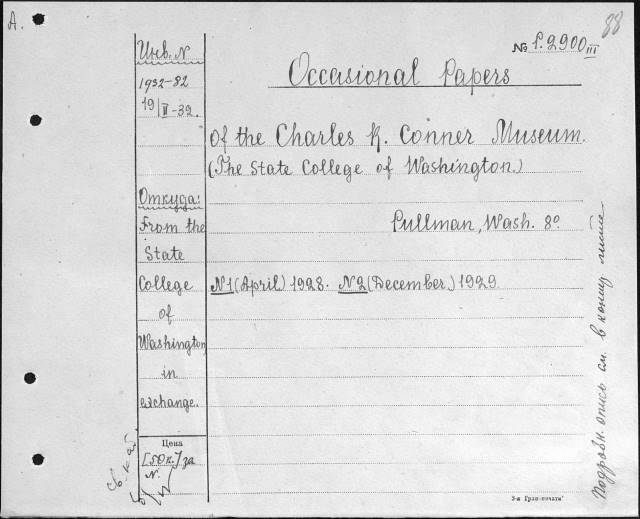 A.
88
№ P.2900 III
Инв. N
1932-82
19/II-32.
Occasional Papers
of the Charles R. Conner Museum.
(The State College of Washington.)
Откуда:
From the
State
College
of
Washington
in
exchange.
Pullman, Wash. 8º
N1 (April) 1928. N2 (December) 1929.
Цена
[50 к.] за
N.
св. кат.
Подробн. опись см. в конце
3-я Гран-печати